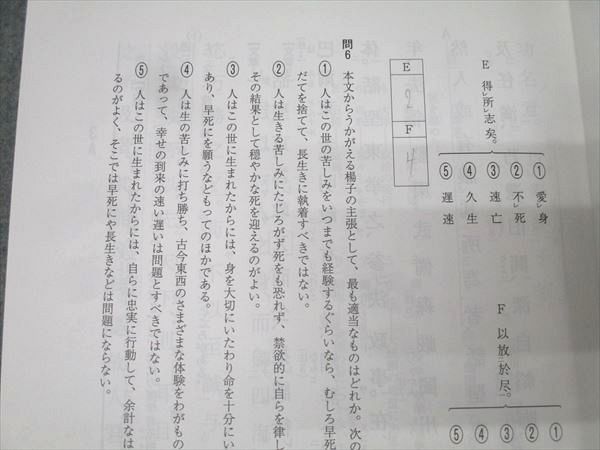 E 得レ所レ志矣。
① 愛レ身
② 不レ死
③ 速亡
④ 久生
⑤ 遅速
F 以放二於尽一。
①
②
③
④
⑤
E
2
F
4
問6 本文からうかがえる楊子の主張として、最も適当なものはどれか。次の
① 人はこの世の苦しみをいつまでも経験するぐらいなら、むしろ早死
だてを捨てて、長生きに執着すべきではない。
② 人は生きる苦しみにたじろがず死をも恐れず、禁欲的に自らを律し
その結果として穏やかな死を迎えるのがよい。
③ 人はこの世に生まれたからには、身を大切にいたわり命を十分にい
あり、早死にを願うなどもってのほかである。
④ 人は生の苦しみに打ち勝ち、古今東西のさまざまな体験をわがもの
であって、幸せの到来の速い遅いは問題とすべきではない。
⑤ 人はこの世に生まれたからには、自らに忠実に行動して、余計なは
るのがよく、そこでは早死にや長生きなどは問題にならない。